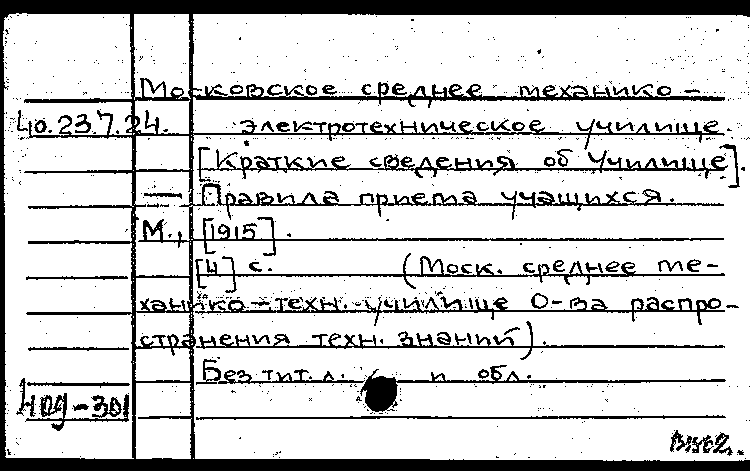 Московское среднее механико-
40.23.7.24. электротехническое училище.
[Краткие сведения об Училище].
— Правила приема учащихся.
М., [1915].
[4] с. (Моск. среднее ме-
ханико-техн. училище О-ва распро-
странения техн. знаний).
Без тит. л. и обл.
409-301